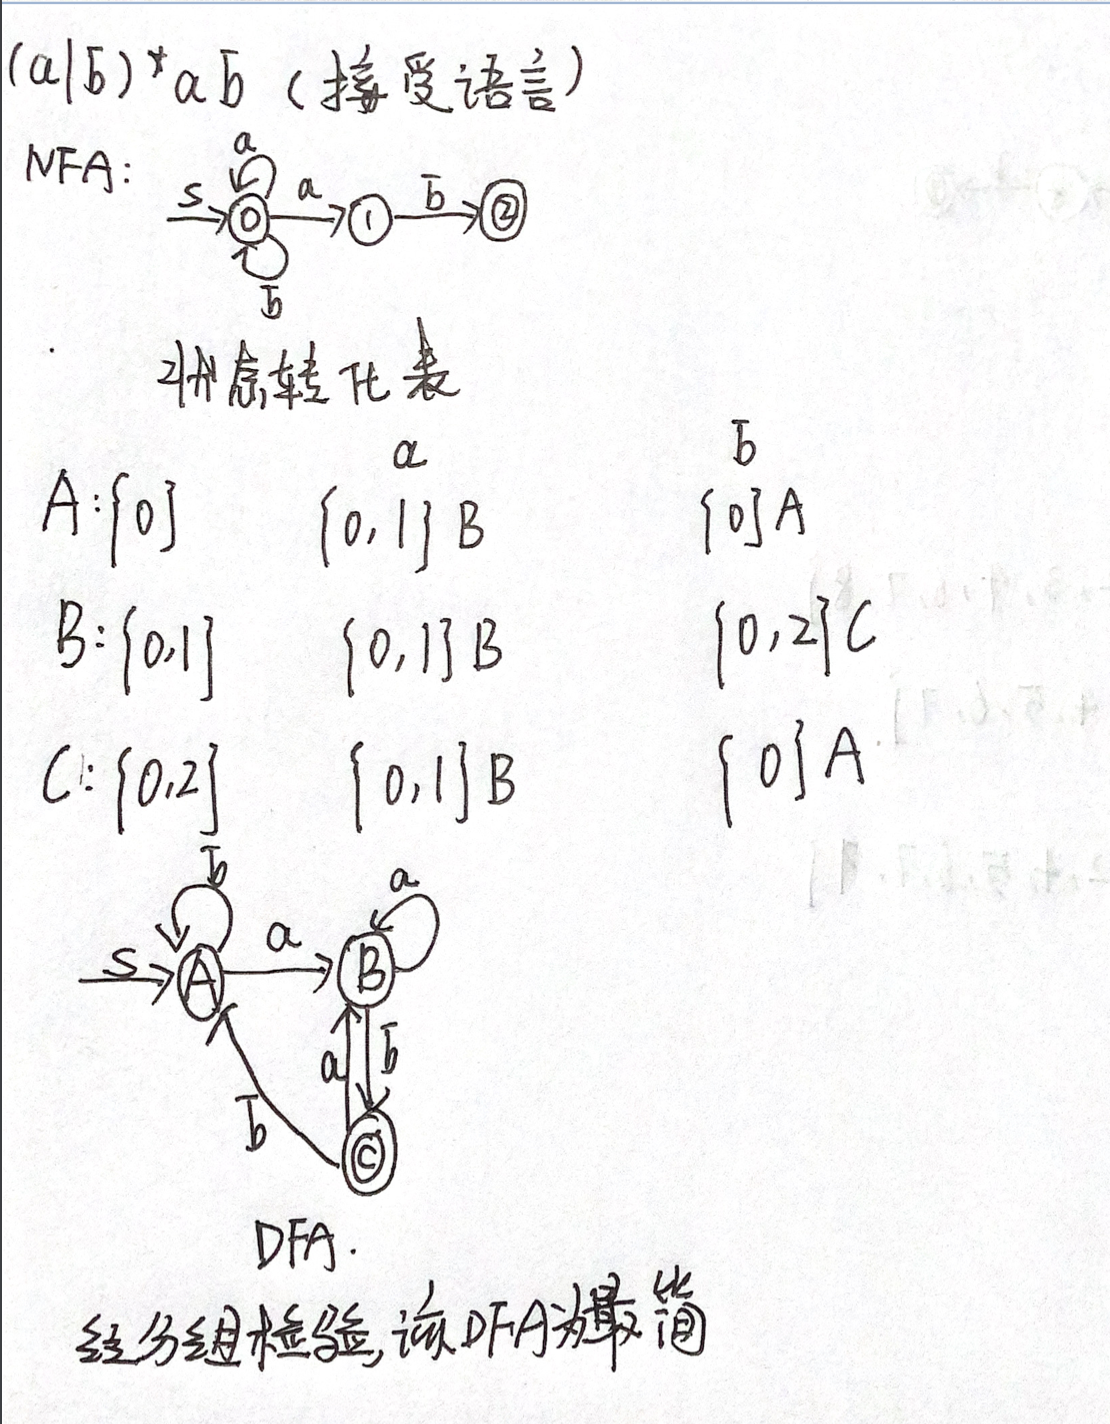 (a|b)*ab (接受语言)
a
NFA: S 0 a 1 b 2
b
状态转化表
a b
A:{0} {0,1} B {0} A
B:{0,1} {0,1} B {0,2} C
C:{0,2} {0,1} B {0} A
b a
S A a B
a b
b
C
DFA.
经分组检验,该DFA为最简